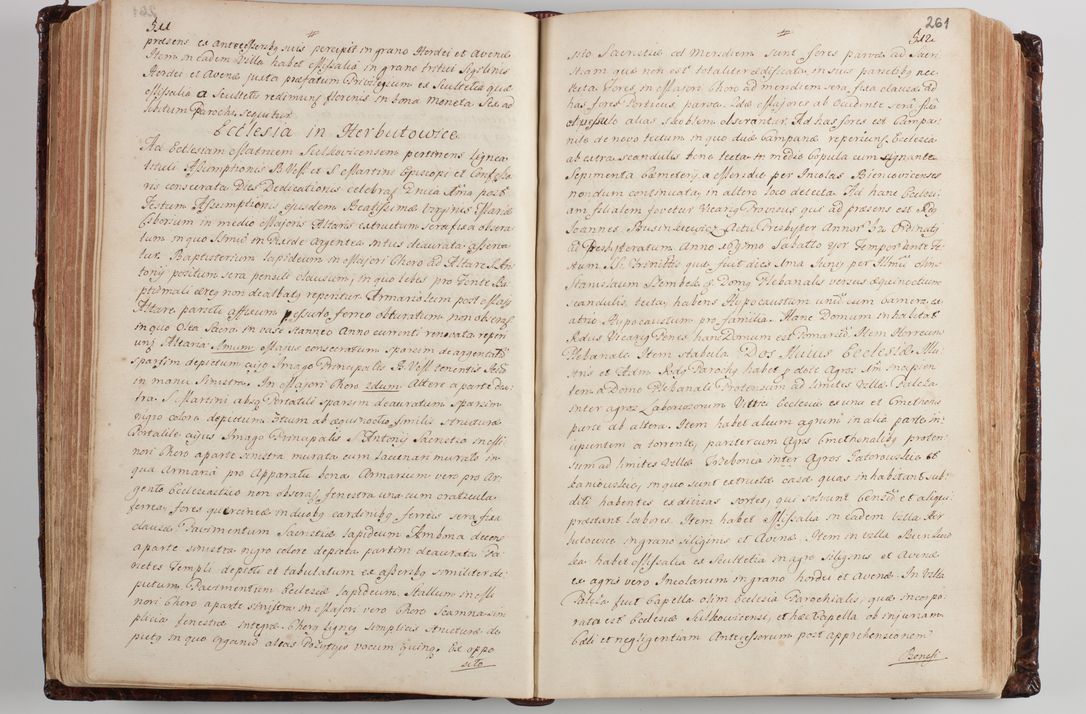 511
præsens ex antecessoribg suis percipit in grano Hordei et Avenæ
Item in eadem Villa habet Missalia in grano tritici Siliginis
Hordei et Avenæ juxta præfatum Privilegium ex Scultetia quæ
Missalia a Scultetis redimunt florenis in bona moneta
Parochi sequitur
Ecclesia in Herbutowice
Ad Ecclesiam Matricem Sulkovicensem pertinens lignea
tituli Assumptionis B. Vss et S Martini Episcopi et Confesso
ris consecrata Dies Dedicationis celebrat Dnica post
Festum Assumptionis ejusdem Beatissimæ Virginis Mariæ
Ciborium in medio Majoris Altaris extructum sera fixa obsera
tum in quo Ssmū in Pixide argentea intus deaurata asserva
tur. Baptisterium lapideum in Majori Choro ad Altare S. An
tonij positum sera pensili clausum, in quo lebes pro Fonte Ba
ptismali æreg non dealbatg reperitur. Armariolum post Majus
Altare parieti affixum pessulo ferreo obturatum non
in quo Olea Sacra in vase stanneo Anno currenti renovata reperi
unt Altaria 1mum Majus consecratum sparsim deargentatū
sparsim depictum cujus Imago Principalis B. Vss tenentis
in manu sinistra. In Majori Choro 2dum Altare a parte dex
tra S. Martini absq Portatili sparsim deauratum sparsim
nigro colore depictum 3tium ab æquinoctio similis structuræ
Portatile cujus Imago Principalis S. Antonij Sacristia in Mi
nori Choro a parte sinistra murata cum lacunari murato in
qua Armaria pro Apparatu bona Armarium vero pro Ar
gento Ecclesiastico non obserat, fenestra una cum craticula
ferrea, fores quercineæ in duobg cardinibg ferreis sera fixa
clausæ Pavimentum Sacristiæ lapideum Ambona decens
a parte sinistra nigro colore depicta partim deaurata. Pa
rietes Templi depicti et tabulatum ex asseribg similiter de
pictum Pavimentum Ecclesiæ lapideum. Stallum in Mi
nori Choro a parte sinistra in Majori vero Choro Scamna sim
plicia fenestræ integræ. Chorg ligneg simplicis structuræ de
pictg in quo Organū alias Pozytyw vocum quinq. Ex oppo
sito

261
512
sito Sacristiæ ad Meridiem sunt fores parvæ ad Sacri
stiam quæ non est totaliter ædificata, in suis parietibg nec
tecta. Fores in Majori Choro ad meridiem sera fixa clausæ ad
has fores Porticus, parva. Aliæ Majores ab Occidente sera fixa
et pessulo alias skoblem obserantur. Ad has fores est Campa
nile de novo tectum in quo duæ Campanæ reperiunt Ecclesia
ab extra scandulis bene tecta in medio Copula cum signante
Sepimenta Cæmeterij a Meridie per Incolas Biencovicenses
nondum continuata in altero loco detecta. Ad hanc Ecclesi
am filialem fovetur Vicarig Provisus qui ad præsens est Rdg
Joannes Businkiewicz Actu Presbyter Annor̃ 30. Ordinatg
ad Presbyteratum Anno 1714mo Sabbatto 4or Temporante Fe
stum SS. Trinitatis quæ fuit dies 1ma Juny per Illmū olim
Stanislaum Szembek Domg Plebanalis versus Æquinoctium
scandulis, tecta, habens Hypocaustum unū cum Camera et
atrio, Hypocaustum pro familia. Hanc Domum inhabitat
Rdus Vicarig Penes hanc Domum est Pomariū Item Horreum
Plebanale Item stabula Dos Huius Ecclesiæ Illu
stris et Adm Rdg Parochg habet p dote Agros 1m incipien
tem a Domo Plebanali Protensum ad limites Villæ Paleza
inter agros Laboriosorum Vittrici Ecclesiæ ex una et Cmethonis
parte ab altera. Item habet alium agrum in alia parte in
cipientem a torrente, pariter cum Agris Cmethonalibg proten
sum ad limites Villæ Trzebonia inter Agros Gatorowskie et
Kaniowskie, in quo sunt extructæ casæ quas inhabitant sub
diti habentes ex divisas sortes, qui solvunt Censū et aliqui
præstant labores. Item habet Missalia in eadem Villa Her
butowice in grano siliginis et Avenæ. Item in villa Bienkow
ka habet Missalia ex Scultetia in agro siliginis et Avenæ
ex agris vero Incolarum in grano hordei et avenæ. In Villa
Paleza fuit Capella olim Ecclesia Parochialis, quæ incorpo
rata est Ecclesiæ Sulkovicensi, et hæc Capella ob injuriam
Cæli et negligentiam Antecessorum post apprehensionem
Benefi